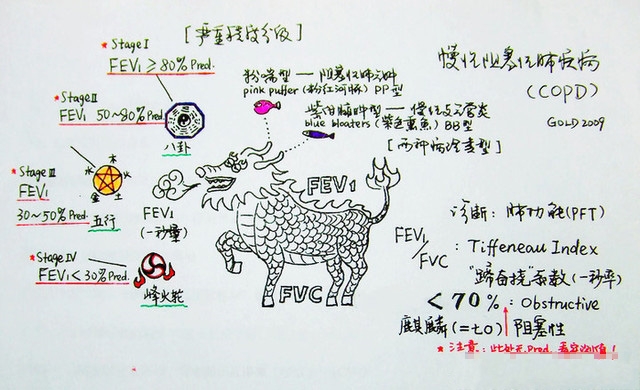 [严重程度分级]
* Stage I
FEV1 ≥ 80% Pred.
* Stage II
FEV1 50~80% Pred.
八卦
* Stage III
FEV1
30~50% Pred.
木
水
火
金 土
五行
* Stage IV
FEV1 < 30% Pred.
烽火轮
FEV1
(一秒量)
粉喘型 — 阻塞性肺气肿
pink puffer (粉红河豚) PP型
紫绀臃肿型 — 慢性支气管炎
blue bloaters (紫色熏鱼) BB型
FEV1
FVC
慢性阻塞性肺疾病
(COPD)
GOLD 2009
诊断: 肺功能(PFT)
FEV1/FVC : Tiffeneau Index
系数(一秒率)
< 70% : Obstructive
麒麟 阻塞性
* 注意: 此处无 Pred. 看实测值!